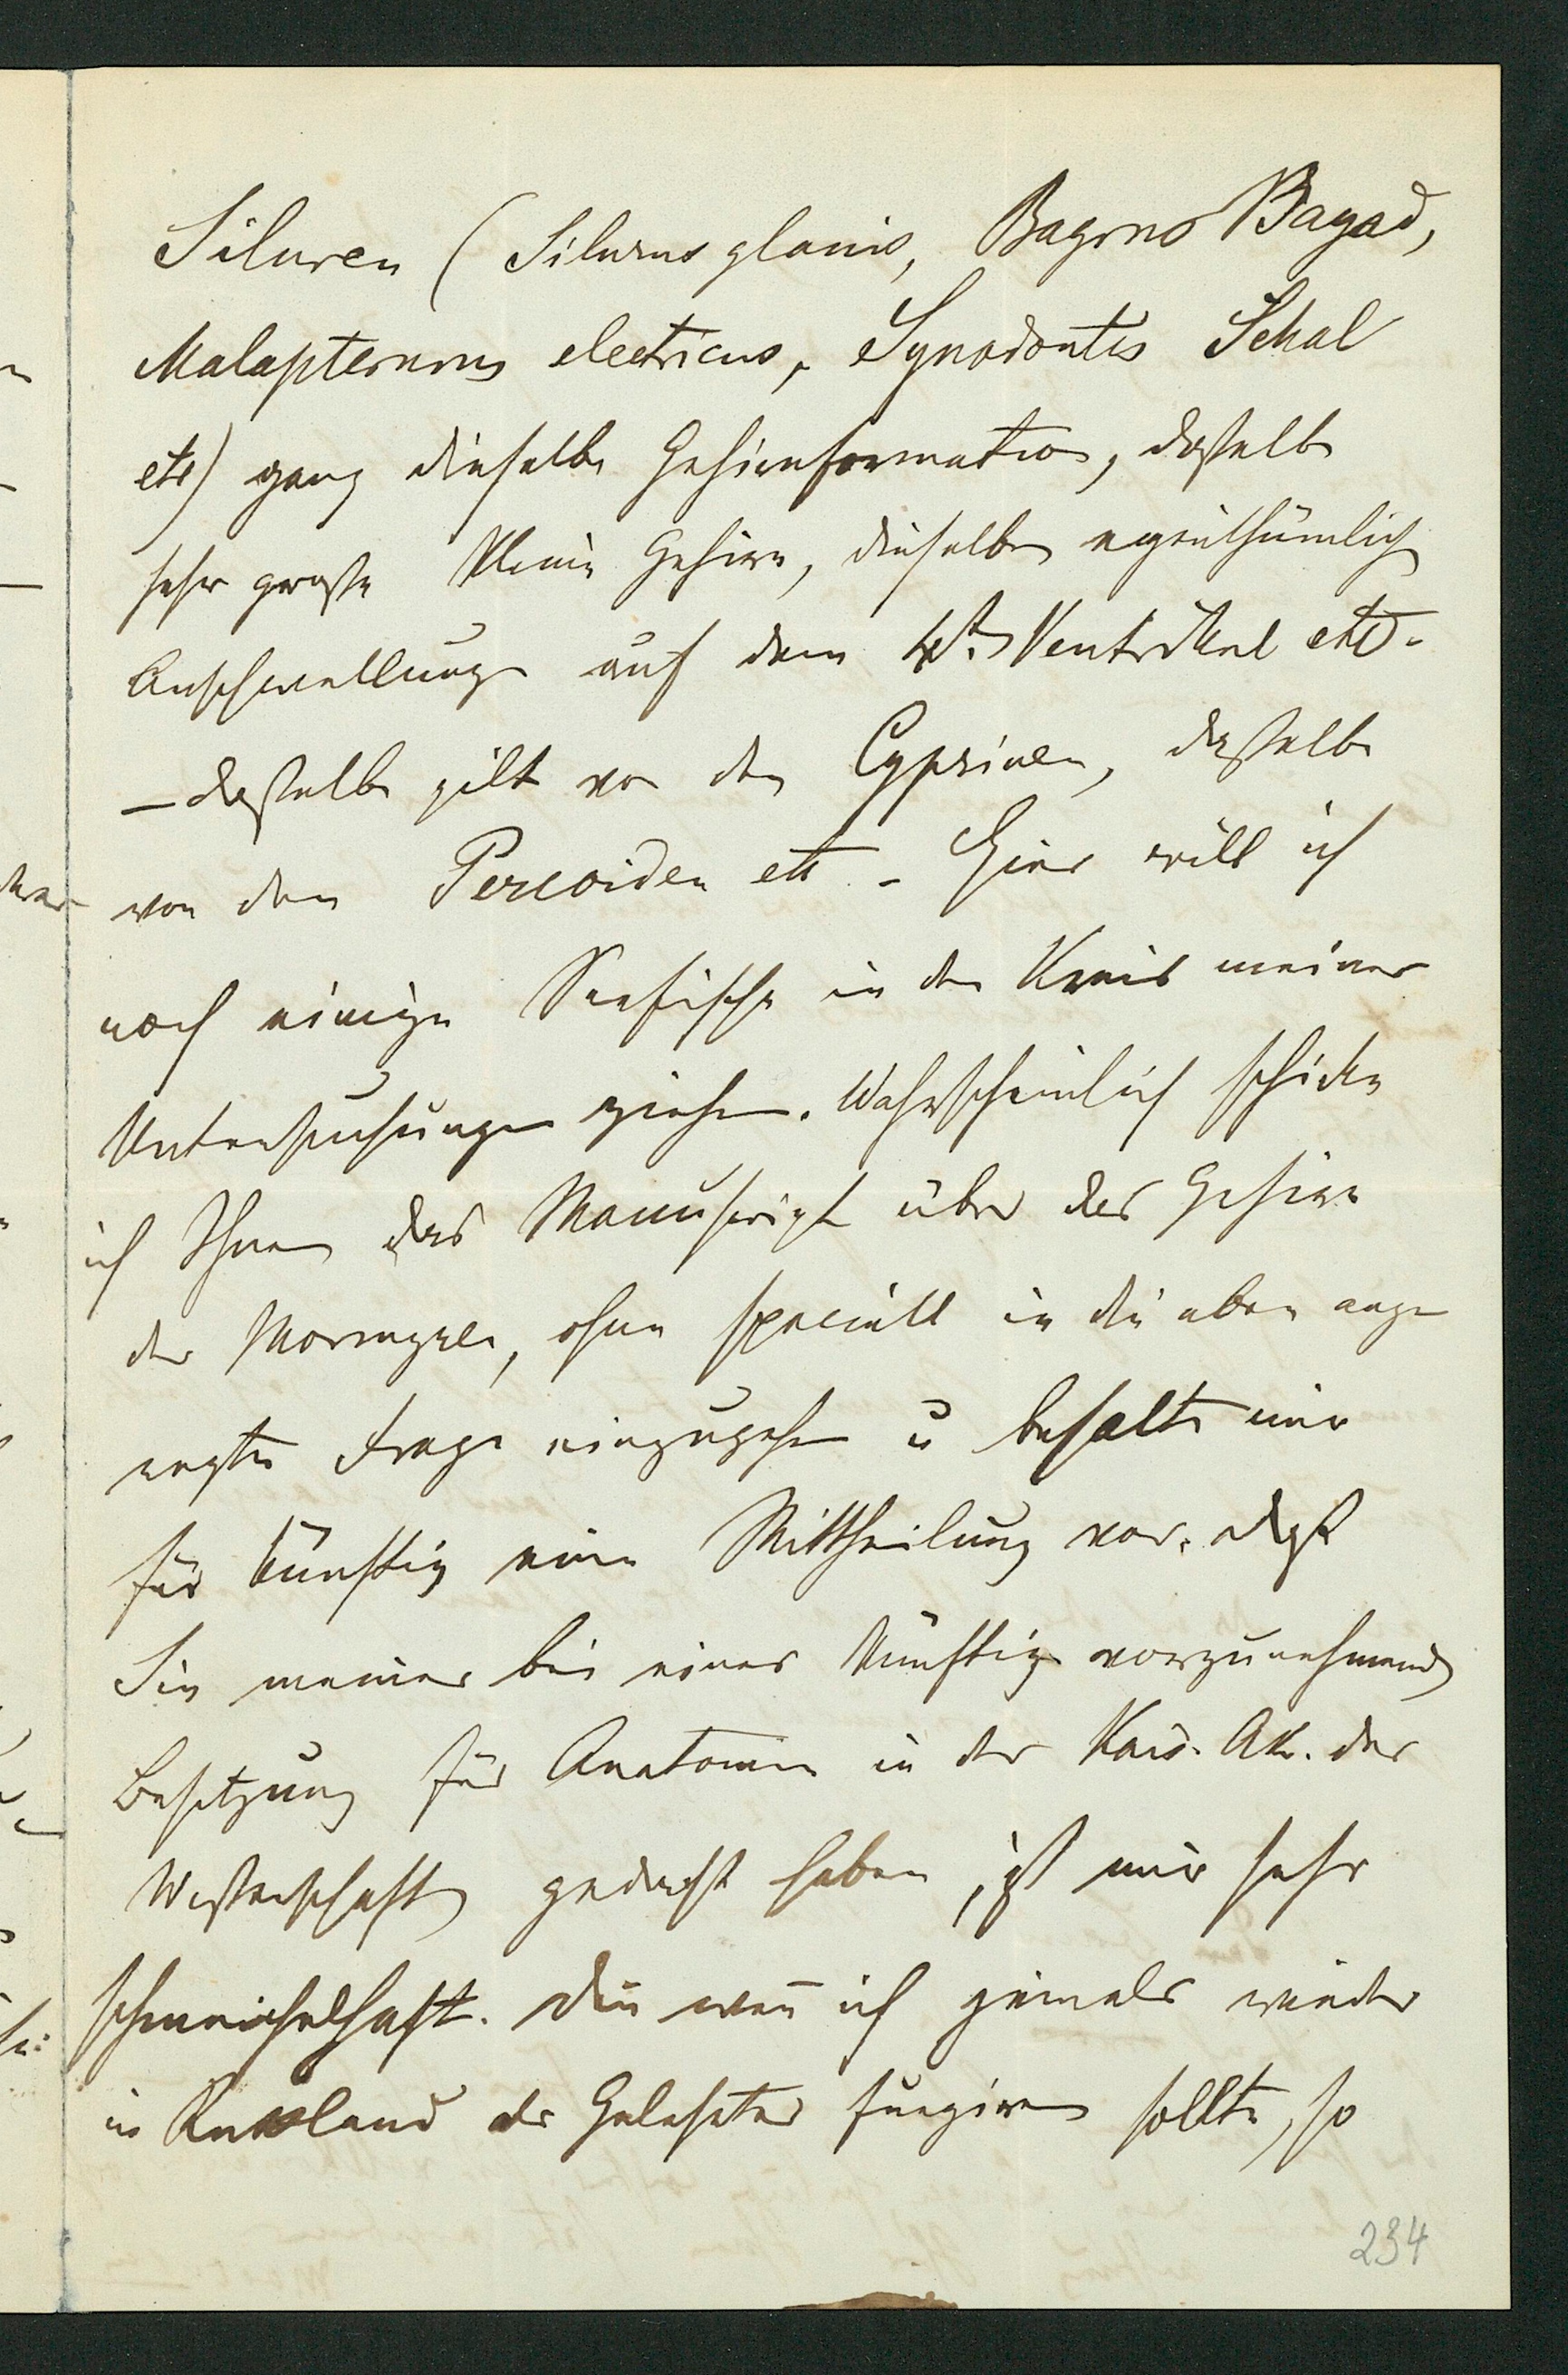 Siluren (Silurus glanis, Bagrus Bayad,
Malapterurus electricus, Synodontis Schal
etc) ganz dieselbe Gehirnformation, dasselbe
sehr grosse kleine Gehirn, dieselben eigenthümlich
Anschwellungen auf dem 4t. Ventrikel etc.
– dasselbe gilt von den Cyprinen, dasselbe
von den Percoiden etc. – Hier will ich
noch einige Seefische in den Kreis meiner
Untersuchungen ziehen. Wahrscheinlich schicke
ich Ihnen das Manuscript über das Gehirn
der Mormyren, ohne speciell in die oben ange
regte Frage einzugehen u behalte mir
für künftig eine Mittheilung vor. Daß
Sie meiner bei einer künftig vorzunehmenden
Besetzung für Anatomie in der Kais. Ak. der
Wissenschaften gedacht haben, ist mir sehr
schmeichelhaft. Denn wen̄ ich jemals wieder
in Russland als Gelehrter fungiren sollte, so
234